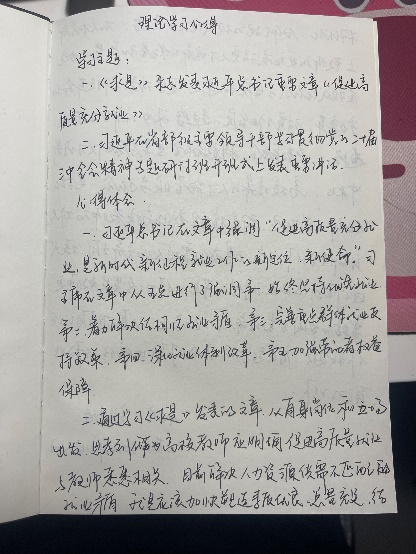 理论学习心得
学习主题：
一.《求是》杂志发表习近平总书记重要文章《促进高
质量充分就业》
二.习近平在省部级主要领导干部学习贯彻党的二十届
三中全会精神专题研讨班开班式上发表重要讲话.
心得体会
一.习近平总书记在文章中强调“促进高质量充分就
业,是新时代新征程就业工作的新定位、新使命.”习
主席在文章中从五点进行了强调 第一 始终坚持就业优先
第二.着力解决结构性就业矛盾 第三,完善重点群体就业支
持政策 第四.深化就业体制改革 第五加强劳动者权益
保障
二.通过学习《求是》发表的文章 从自身岗位和立场
出发 思考到作为高校教师应明确促进高质量就业
与教师悉悉相关 目前解决人力资源供需不匹配的
就业矛盾 于是应该加快塑造素质优良、总量充足、结